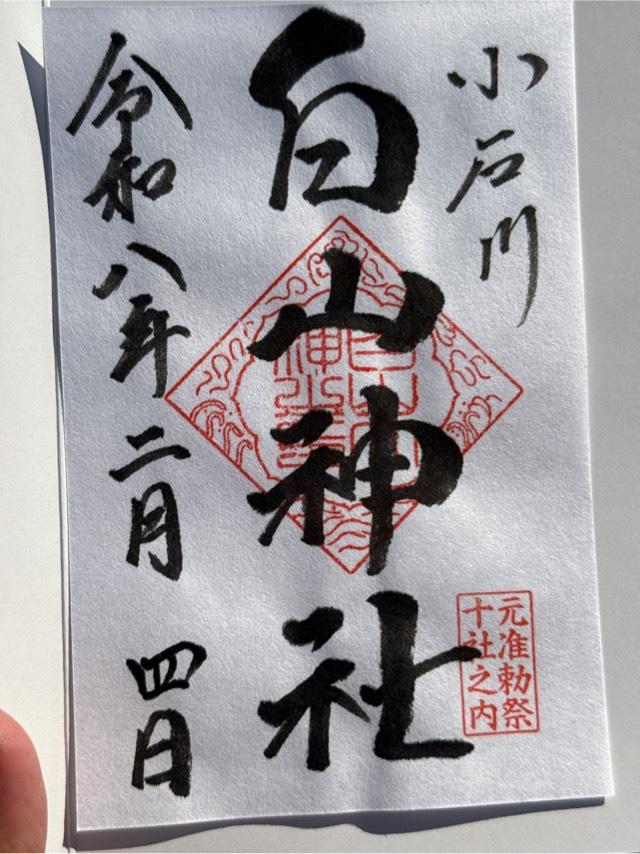 小石川
白山神社
元准勅祭
十社之内
令和八年二月四日